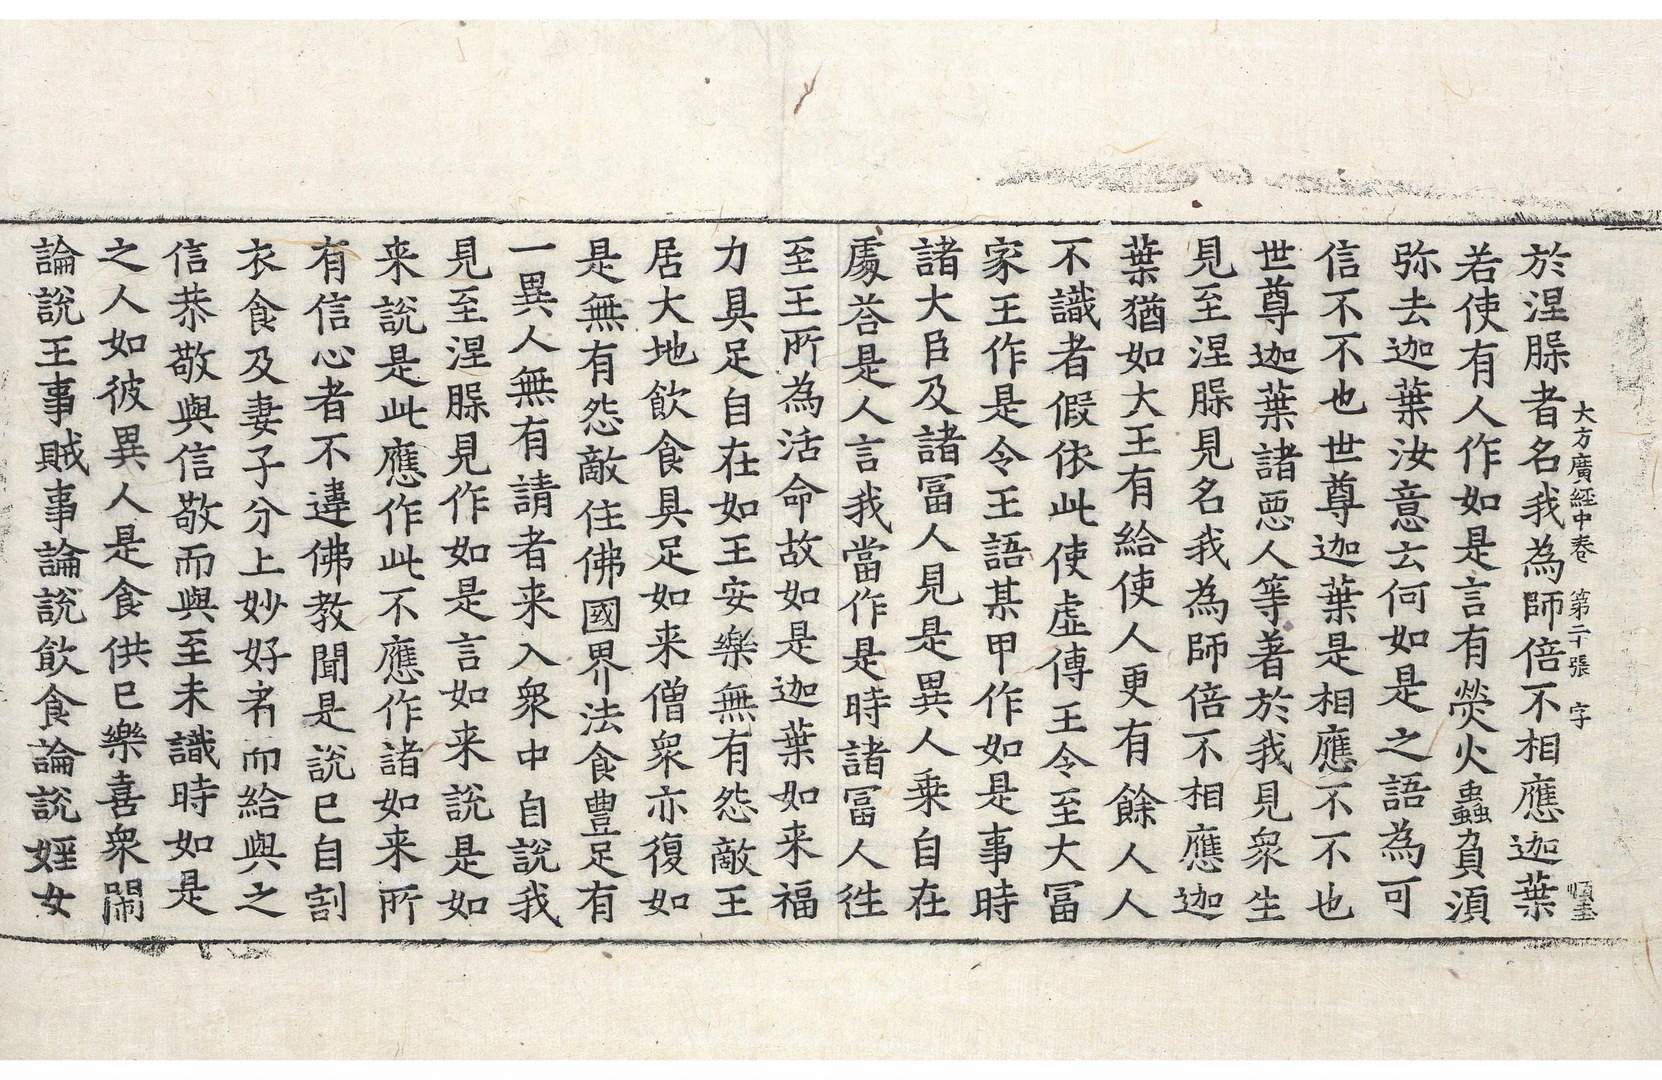 大方廣經中卷　第二十張　字
於涅槃者名我為師倍不相應迦葉
若使有人作如是言有熒火蟲負湏
弥去迦葉汝意云何如是之語為可
信不不也世尊迦葉是相應不不也
世尊迦葉諸惡人等著於我見衆生
見至涅槃見名我為師倍不相應迦
葉猶如大王有給使人更有餘人人
不識者假依此使虛傳王令至大冨
家王作是令王語某甲作如是事時
諸大臣及諸冨人見是異人乗自在
處荅是人言我當作是時諸冨人徃
至王所為活命故如是迦葉如来福
力具足自在如王安樂無有怨敵王
居大地飲食具足如来僧衆亦復如
是無有怨敵住佛國界法食豊足有
一異人無有請者来入衆中自說我
見至涅槃見作如是言如来說是如
来說是此應作此不應作諸如来所
有信心者不違佛教聞是說已自割
衣食及妻子分上妙好者而給與之
信恭敬與信敬而與至未識時如是
之人如彼異人是食供已樂喜衆閙
論說王事賊事論說飲食論說婬女